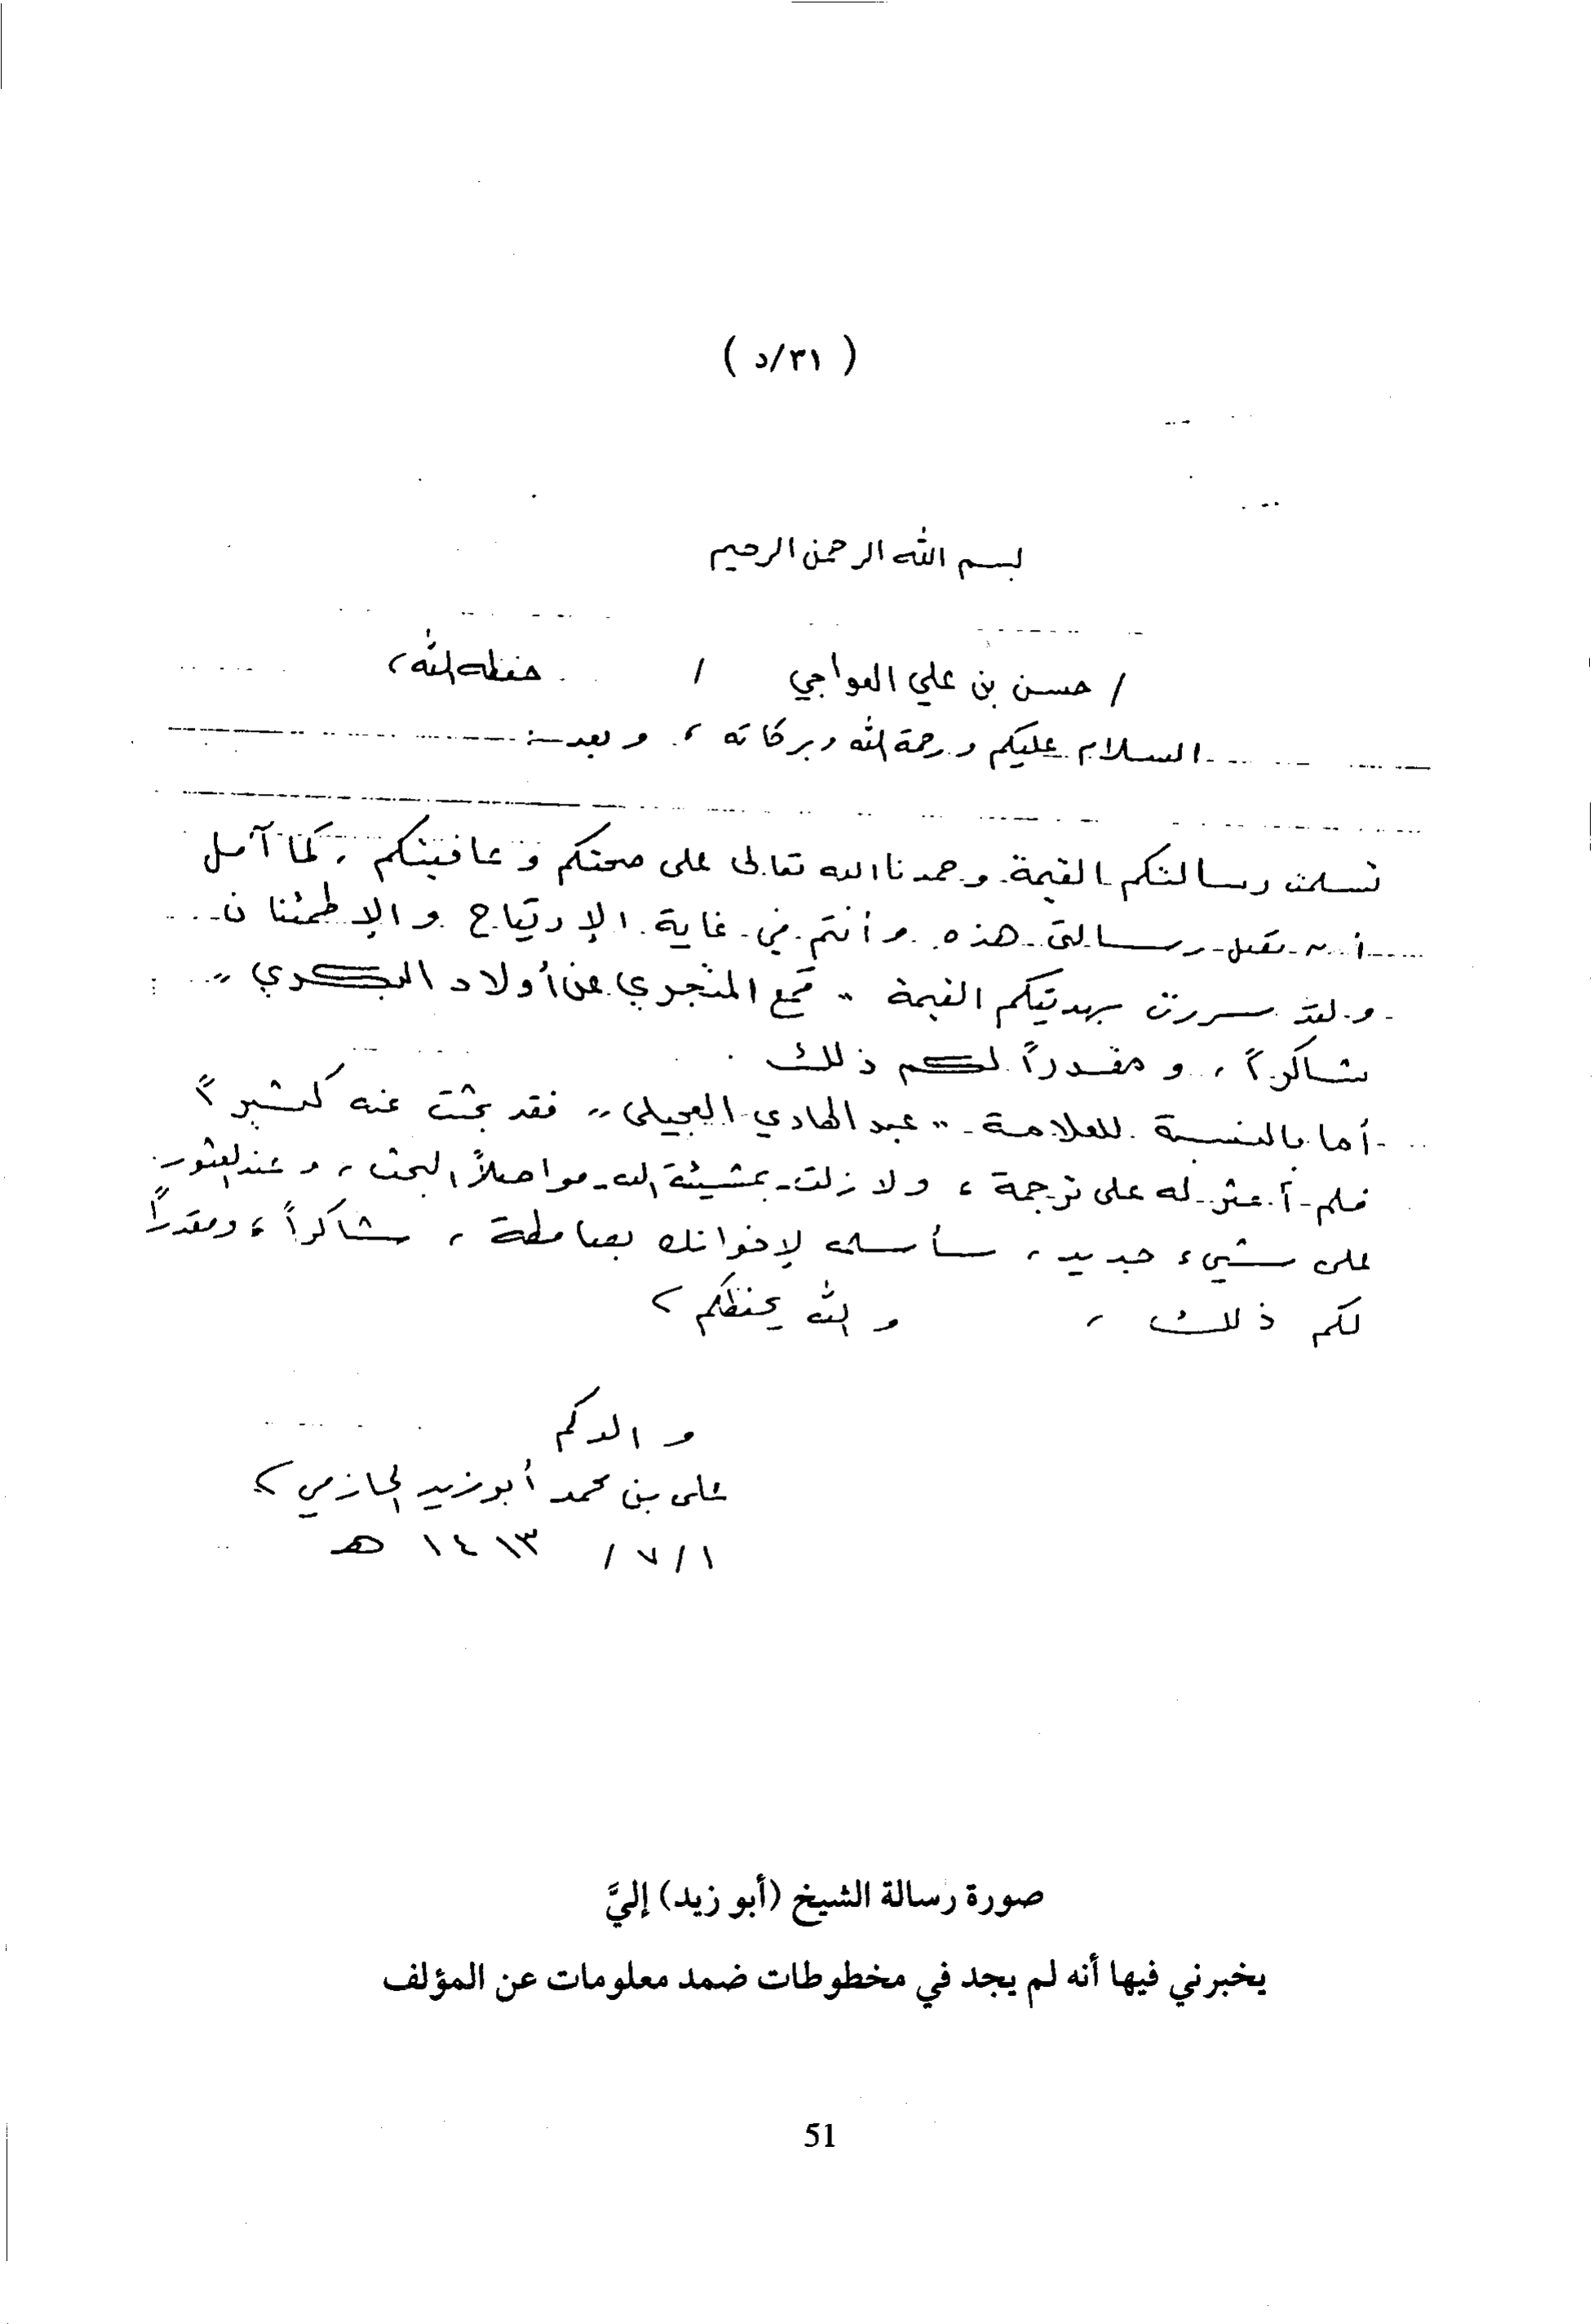 ( ٣١/د )
بسم الله الرحمن الرحيم
/ حسن بن علي العواجي / حفظه الله،
السلام عليكم ورحمة الله وبركاته ، وبعد :
تسلمت رسالتكم القيمة وحمدنا الله تعالى على صحتكم وعافيتكم ، كما آمل
أن تصل رسالتي هذه وأنتم في غاية الإرتياح والإطمئنان
ولقد سررت بهديتكم القيمة " قمع المتجري عن أولاد البكري "
شاكراً ، ومقدراً لكم ذلك .
أما بالنسبة للعلامة " عبد الهادي العجيلي " فقد بحثت عنه كثيراً
فلم أعثر له على ترجمة ، ولا زلت بمشيئة الله مواصلاً البحث ، وعند العثور
على شيء جديد ، سأرسله لإخوانك ، شاكراً ، ومقدراً
لكم ذلك ، والله يحفظكم
والدكم
علي بن محمد أبو زيد الحازمي
١ / ٧ / ١٤١٣ هـ
صورة رسالة الشيخ (أبو زيد) إليَّ
يخبرني فيها أنه لم يجد في مخطوطات ضمد معلومات عن المؤلف
51